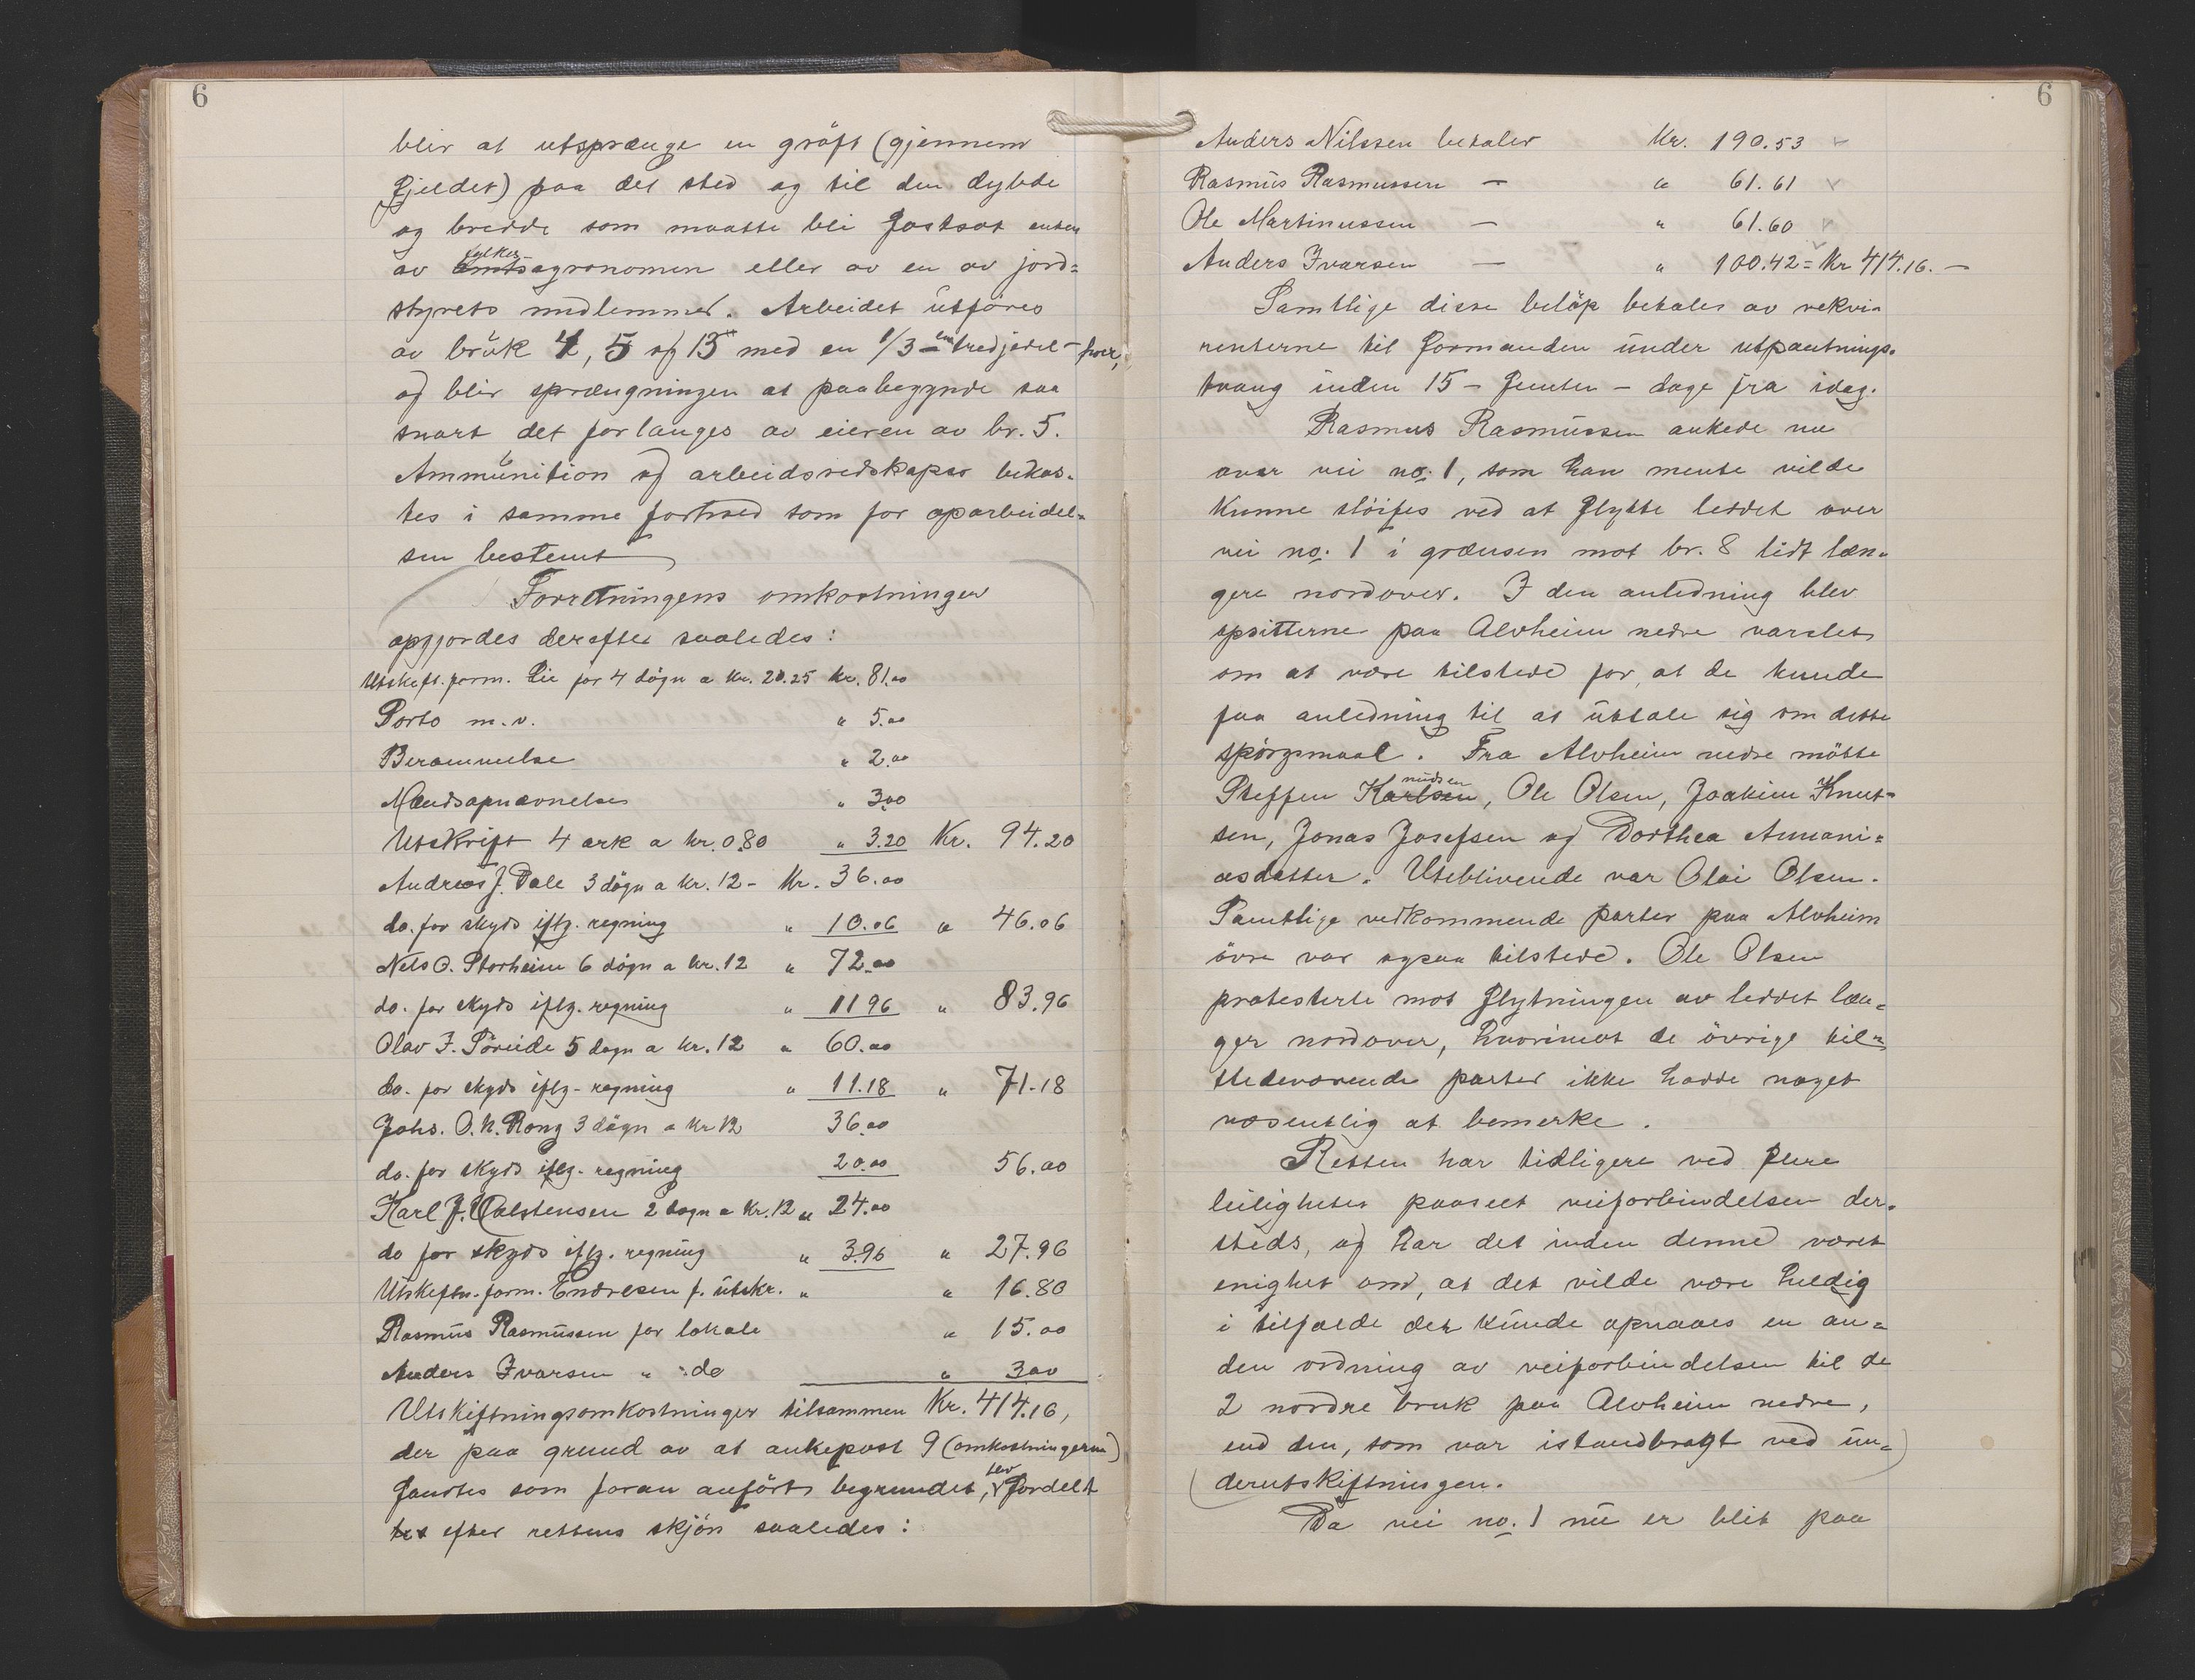 6
blir at utsprænge en grøft (gjennem
fjeldet) paa det sted og til den dybde
og bredde som maatte bli fastsat enten
av amtsagronomen fylkes- eller av en av jord=
styrets medlemmer. Arbeidet utføres
av bruk 4, 5 og 13 med en 1/3 - en tredjedel - hver,
og blir sprængningen at paabegynde saa
snart det forlanges av eieren av br. 5.
Ammunition og arbeidsredskaper bekos-
tes i samme forhold som for oparbeidel-
sen bestemt
Forretningens omkostninger
opgjordes derefter saaledes:
Utskift.form. Lie for 4 døgn a kr. 20.25 kr. 81.00
Porto m.v. " 5.00
Berammelse " 2.00
Mændsopnævnelse " 3.00
Utskrift 4 ark a kr. 0.80 " 3.20 Kr. 94.20
Andreas J. Dale 3 døgn a kr. 12 - Kr. 36.00
do. for skyds iflg. regning " 10.06 " 46.06
Nels O. Storheim 6 døgn a kr. 12 " 72.00
do. for skyds iflg. regning " 11.96 " 83.96
Olav J. Søreide 5 døgn a kr. 12 " 60.00
do. for skyds iflg. regning " 11.18 " 71.18
Johs. O.N. Rong 3 døgn a kr 12 36.00
do. for skyds iflg. regning 20.00 56.00
Karl J. Valstensen 2 døgn a kr. 12 " 24.00
do for skyds iflg. regning " 3.96 " 27.96
Utskiftn.form. Endresen f. utskr. " " 16.80
Rasmus Rasmussen for lokale " 15.00
Anders Ivarsen " :do " 3.00
Utskiftningsomkostninger tilsammen Kr. 414.16,
der paa grund av at ankepost 9 (omkostningerne)
fandtes som foran anført begrundet, blev fordelt
efter rettens skjøn saaledes:
6
Anders Nilssen betaler Kr. 190.53
Rasmus Rasmussen — " 61.61
Ole Martinussen — " 61.60
Anders Ivarsen — " 100.42 = Kr 414.16. —
Samtlige disse beløp betales av rekvi-
renterne til formanden under utpantnings-
tvang inden 15 - femten - dage fra idag.
Rasmus Rasmussen ankede nu
over vei no. 1, som han mente vilde
kunne sløifes ved at flytte leddet over
vei no. 1 i grænsen mot br. 8 lidt læn-
gere nordover. I den anledning blev
opsitterne paa Alvheim nedre varslet
om at være tilstede for, at de kunde
faa anledning til at uttale sig om dette
spørgsmaal. Fra Alvheim nedre møtte
Steffen Karlsen nudsen, Ole Olsen, Joakim Knut-
sen, Jonas Josefsen og Dorthea Annani=
asdatter. Uteblivende var Olai Olsen.
Samtlige vedkommende parter paa Alvheim
øvre var ogsaa tilstede. Ole Olsen
protesterte mot flytningen av leddet læn-
ger nordover, hvorimot de øvrige til=
stedeværende parter ikke hadde noget
væsentlig at bemerke.
Retten har tidligere ved flere
leiligheter paaseet veiforbindelsen der-
steds, og har det inden denne været
enighet om, at det vilde være heldig
i tilfælde det kunde opnaaes en an=
den ordning av veiforbindelsen til de
2 nordre bruk paa Alvheim nedre,
end den, som var istandbragt ved un=
derutskiftningen.
Da vei no. 1 nu er blit paa